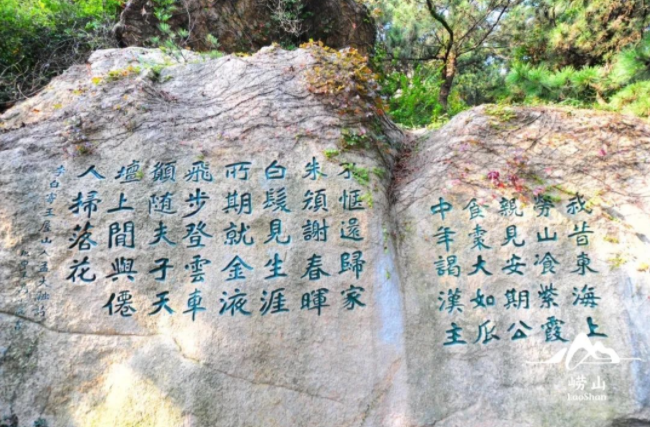 我昔東海上
勞山飡紫霞
親見安期公
食棗大如瓜
中年謁漢主
不惬還歸家
朱顔謝春暉
白髮見生涯
所期就金液
飛步登雲車
願随夫子天
壇上閒與僊
人掃落花
崂山
LaoShan